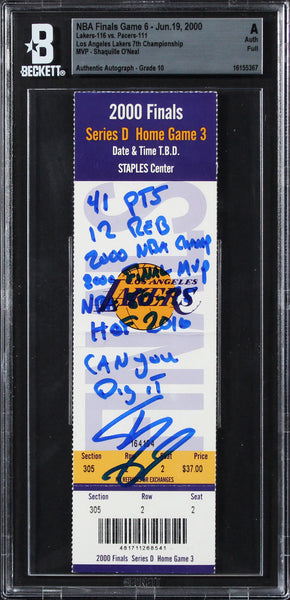 BECKETT
NBA Finals Game 6 - Jun.19, 2000
Lakers-116 vs. Pacers-111
Los Angeles Lakers 7th Championship
MVP - Shaquille O'Neal
Authentic Autograph - Grade 10
A
Auth
Full
16155367
2000 Finals
Series D Home Game 3
Date & Time T.B.D.
STAPLES Center
41 PTS
12 REB
2000 NBA Champ
2000 FINAL MVP
LOS ANGELES
LAKERS
HOF 2016
CAN YOU
Dig iT
Section
Row
Seat
Price
305
2
2
$37.00
NO REFUNDS OR EXCHANGES
Section
Row
Seat
305
2
2
481711268541
2000 Finals Series D Home Game 3